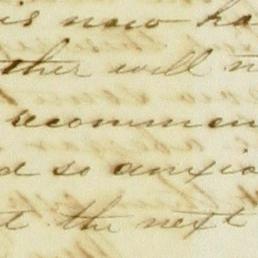 is now ha
ther will n
recommen
d so anxio
t the next